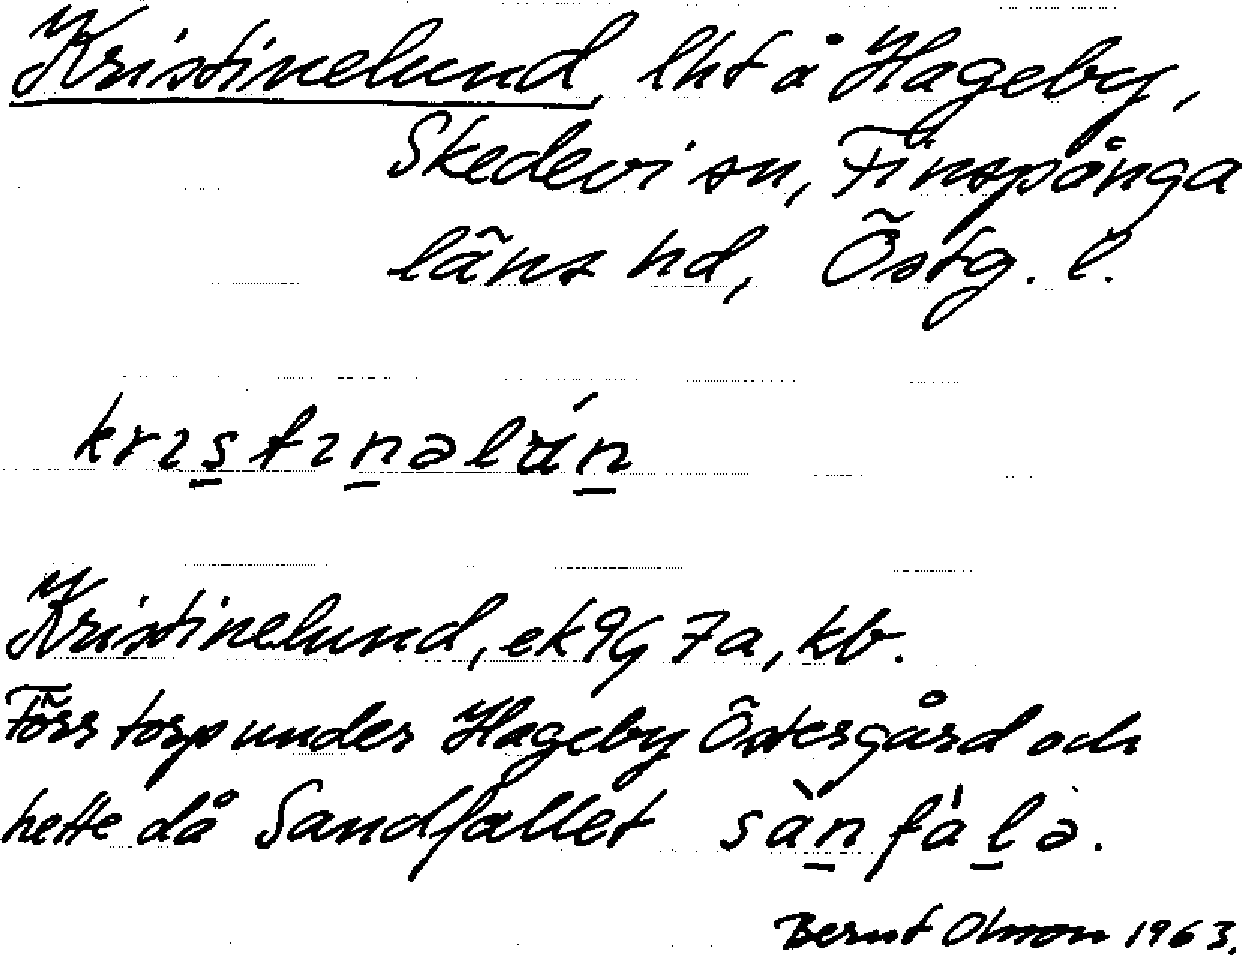 Kristinelund, lht å Hageby,
Skedevi sn, Finspånga
läns hd, Östg. l.
krıs̲tın̲əlún̲
Kristinelund, ek 9G 7a, kb.
Förr torp under Hageby Östergård och
hette då Sandfallet sàn̲fál̲ə.
Bernt Olsson 1963.